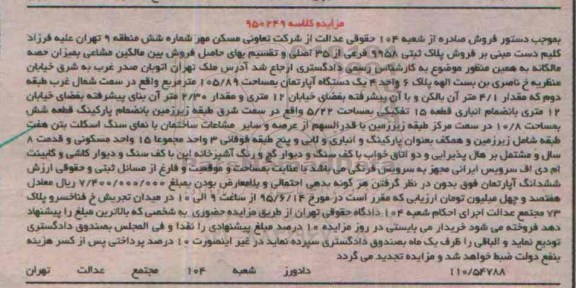 مزایده کلاسه ۹۵۰۲۴۹
بموجب دستور فروش صادره از شعبه ۱۰۴ حقوقی عدالت از شرکت تعاونی مسکن مهر شماره شش منطقه ۹ تهران علیه فرزاد
کلیم دست مبنی بر فروش پلاک ثبتی ۹۹۵۸ فرعی از ۳۵ اصلی و تقسیم بهای حاصل فروش بین مالکین مشاعی بمیزان حصه
مالکانه به همین منظور موضوع به کارشناس رسمی دادگستری ارجاع شد آدرس ملک تهران اتوبان صدر غرب به شرق خیابان
منظریه خ ناصری بن بست الهه پلاک ۶ واحد ۴ یک دستگاه آپارتمان بمساحت ۱۰۵/۸۹ مترمربع واقع در سمت شمال غرب طبقه
دوم که مقدار ۴/۱ متر آن بالکن و با آن پیشرفته بفضای خیابان ۱۲ متری و مقدار ۲/۳۰ متر آن بنای پیشرفته بفضای خیابان
۱۲ متری بانضمام انباری قطعه ۱۵ تفکیکی بمساحت ۵/۲۲ واقع در سمت شرق طبقه زیرزمین بانضمام پارکینگ قطعه شش
بمساحت ۱۰/۸ در سمت مرکز طبقه زیرزمین با قدرالسهم از عرصه و سایر مشاعات ساختمان با نمای سنگ اسکلت بتن هفت
طبقه شامل زیرزمین و همکف بعنوان پارکینگ و انباری و لابی و پنج طبقه فوقانی ۳ واحد مجموعا ۱۵ واحد مسکونی و قدمت ۸
سال و مشتمل بر هال پذیرایی و دو اتاق خواب با کف سنگ و دیوار گچ و رنگ آشپزخانه اپن با کف سنگ و دیوار کاشی و کابینت
ام دی اف سرویس ایرانی مجهز به سرویس فرنگی می باشد با عنایت بمساحت و موقعیت و فارغ از مسائل ثبتی و حقوقی ارزش
ششدانگ آپارتمان فوق بدون در نظر گرفتن هر گونه بدهی احتمالی و بلامعارض بودن بمبلغ ۷/۴۰۰/۰۰۰/۰۰۰ ریال معادل
هفتصد و چهل میلیون تومان ارزیابی که مقرر است در مورخ ۹۵/۶/۱۴ از ساعت ۹ الی ۱۰ در میدان تجریش خ فناخسرو پلاک
۷۳ مجتمع عدالت اجرای احکام شعبه ۱۰۴ دادگاه حقوقی تهران از طریق مزایده حضوری به شخصی که بالاترین مبلغ را پیشنهاد
دهد فروخته می شود خریدار می بایستی در روز مزایده ۱۰ درصد مبلغ پیشنهادی را نقدا و فی المجلس بصندوق دادگستری
تودیع نماید و الباقی را ظرف یک ماه بصندوق دادگستری سپرده نماید در غیر اینصورت ۱۰ درصد پرداختی پس از کسر هزینه
بنفع دولت ضبط خواهد شد و مزایده تجدید می گردد
۱۱۰/۵۴۷۸۸ دادورز شعبه ۱۰۴ مجتمع عدالت تهران